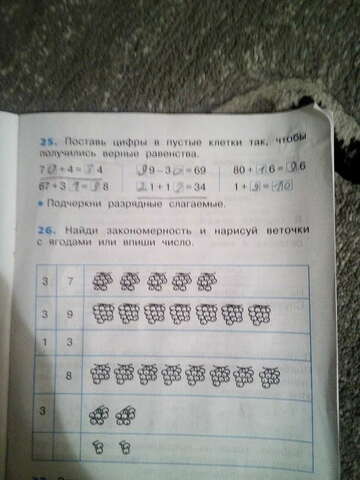 25. Поставь цифры в пустые клетки так, чтобы
получились верные равенства.
70 + 4 = 74 99 – 30 = 69 80 + 16 = 96
67 + 31 = 98 21 + 13 = 34 1 + 9 = 10
• Подчеркни разрядные слагаемые.
26. Найди закономерность и нарисуй веточки
с ягодами или впиши число.
3 7
3 9
1 3
8
3